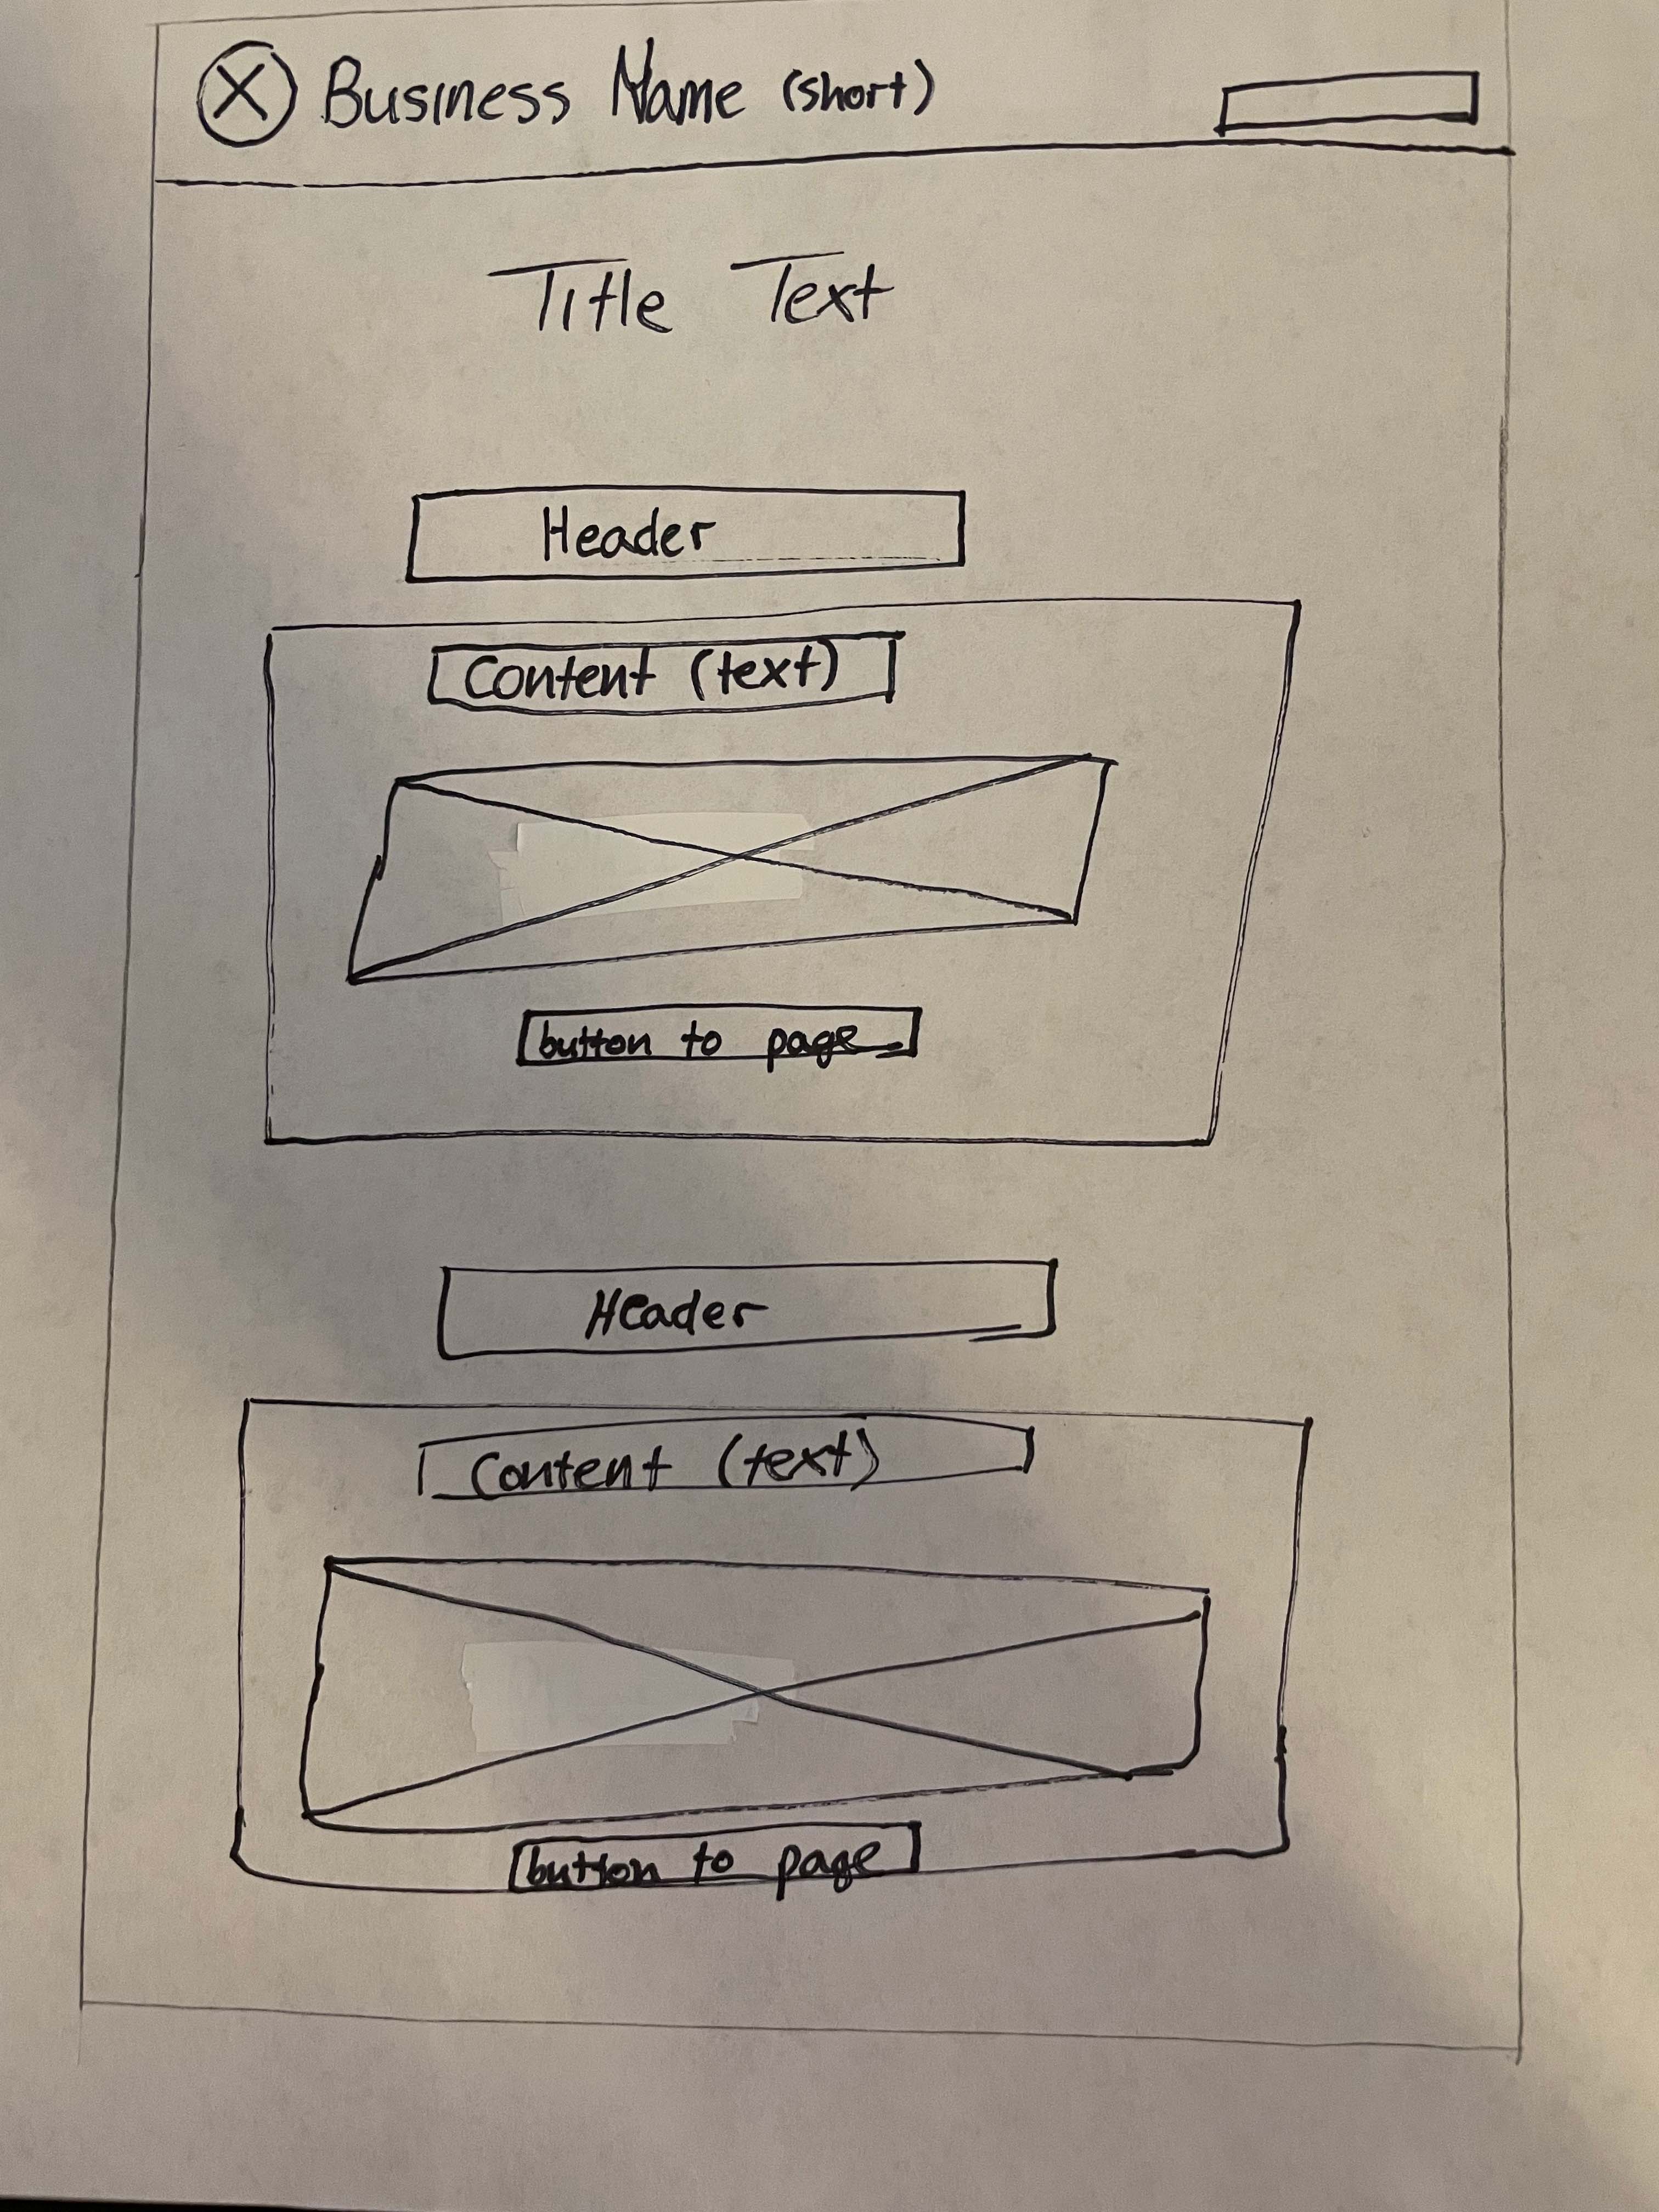 Business Name (short)
Title Text
Header
Content (text)
button to page
Header
Content (text)
button to page